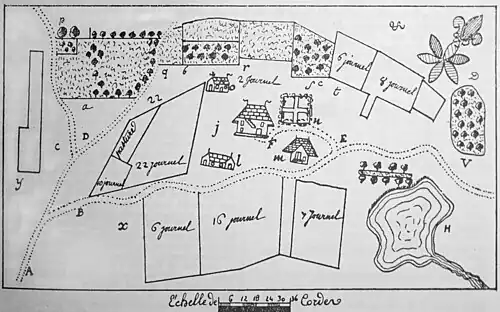 p
q 6 r s c t
6 journel
8 journel
D
a
22
2 journel
c D
pasture
j
n
E
F
V
22 journel
10 journel
l
m
y
B
x
6 journel
16 journel
7 journel
H
A
Echelle de 6 12 18 24 30 36 Cordes